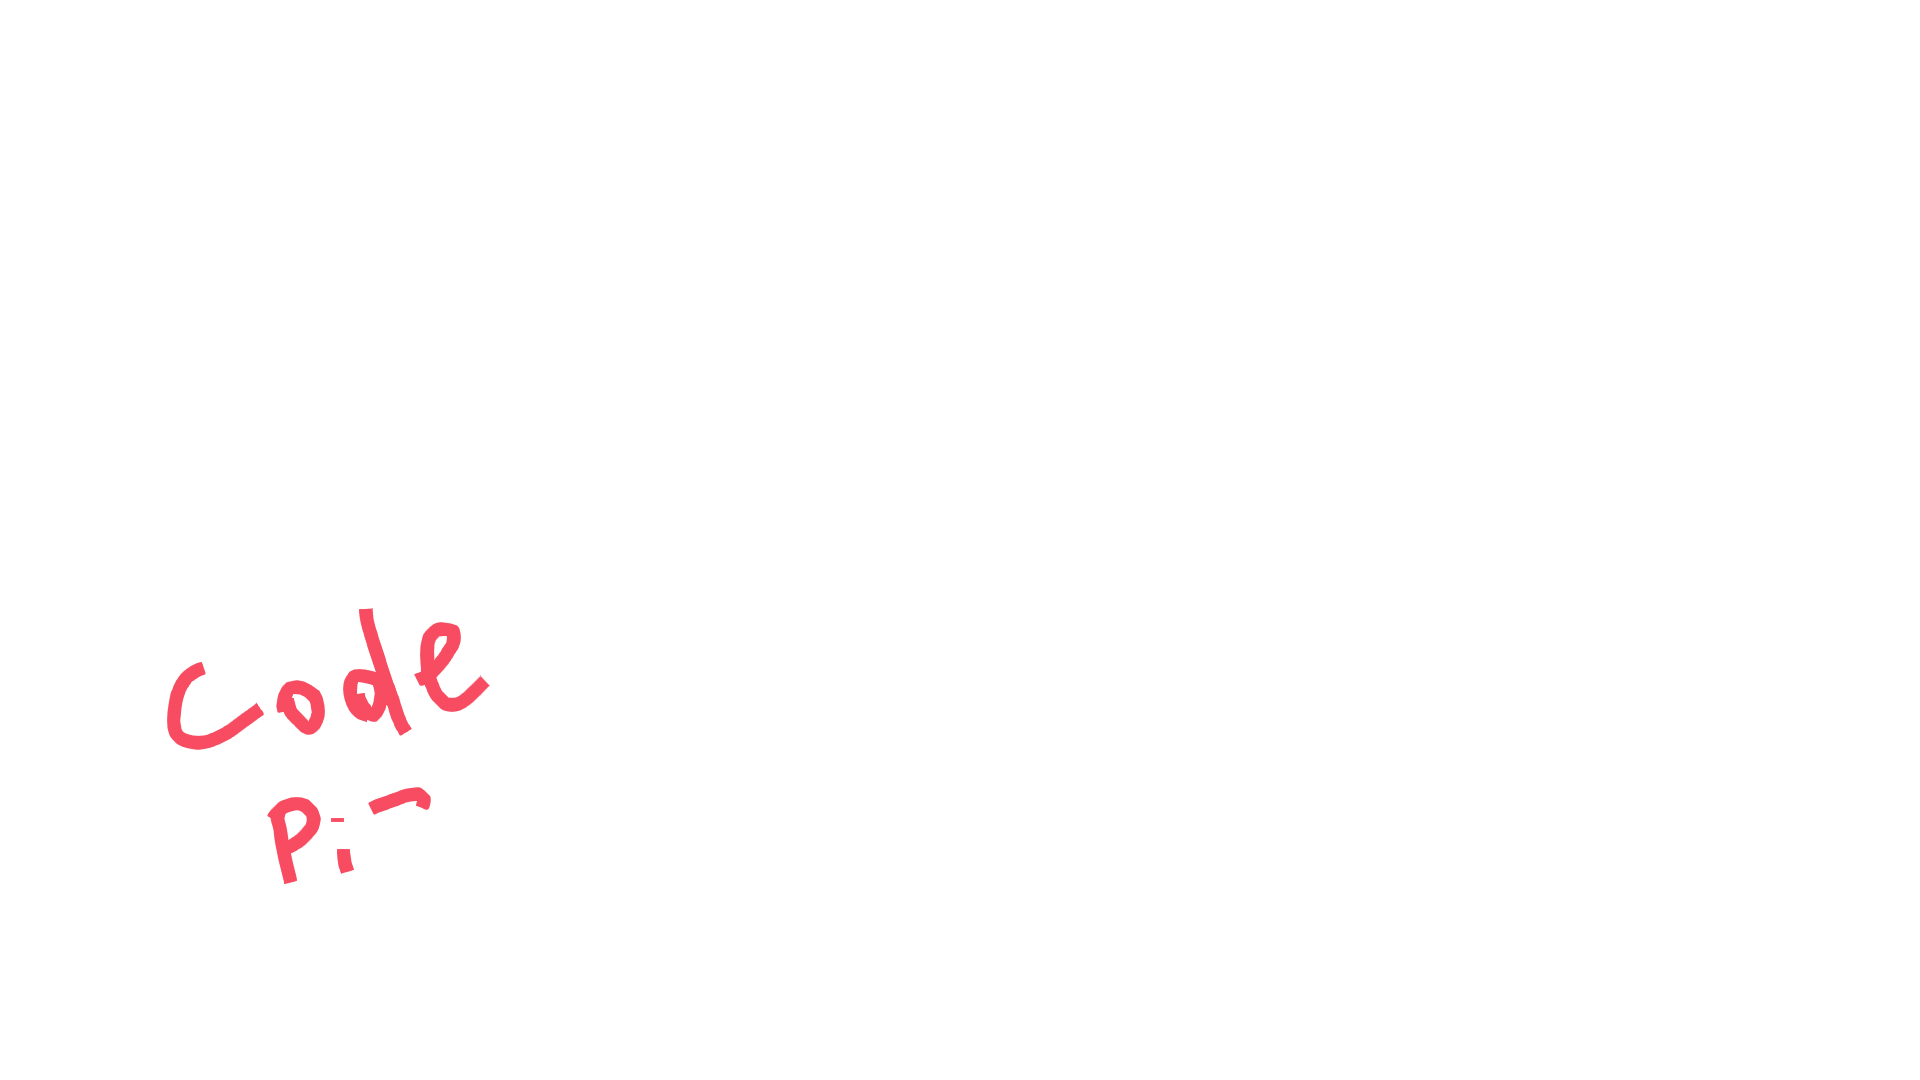 Code
Pi